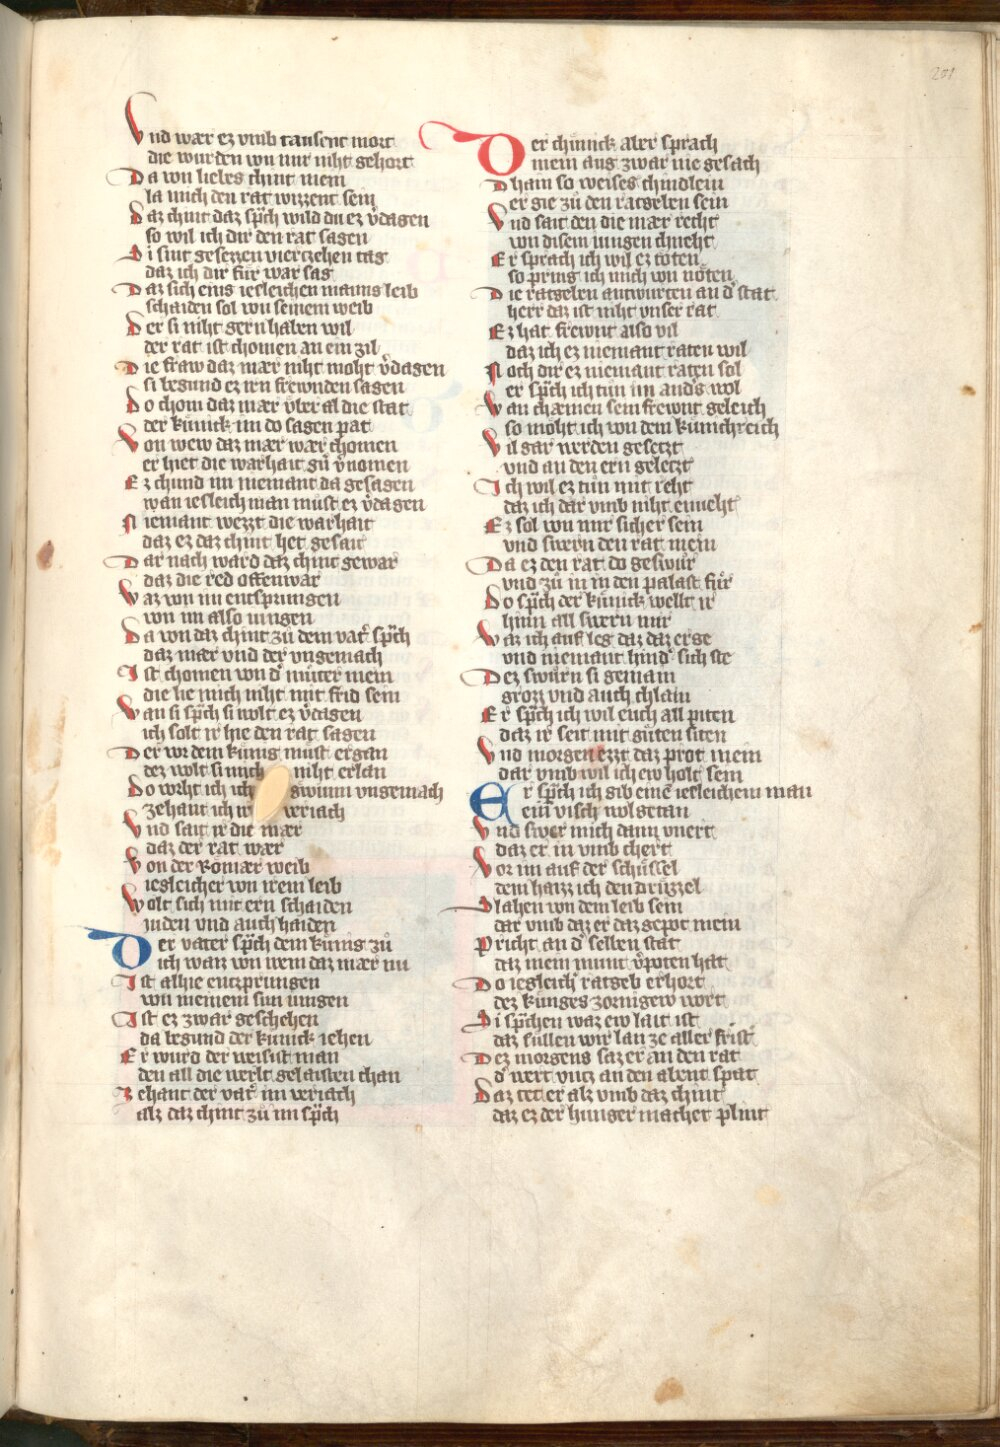 251
Vnd wær ez vmb tausent mort
die wurden von mir niht gehort
Da von liebes chint mein
la mich den rat wizzent sein
Daz chint daz sp̃ch wild du ez v̾dagen
so wil ich dir den rat sagen
Si sint gesezzen vierczehen tag
daz ich dir für war sag
Daz sich eins iesleichen manns leib
schaiden sol von seinem weib
Der si niht gern haben wil
der rat ist chomen an ein zil
Die fraw daz mær niht moht v̾dagen
si begund ez irn frewnden sagen
Do chom daz mær vber al die stat
der künick im do sagen pat
Von wew daz mær wær chomen
er hiet die warhait gů v̾nomen
Ez chund im niemant da gesagen
wan iesleich man must ez v̾dagen
Niemant wezzt die warhait
daz ez daz chint het gesait
Dar nach ward daz chint gewar
daz die red offenwar
Waz von im entsprungen
von im also iungen
Da von daz chint zů dem vat̾ sp̃ch
daz mær vnd der vngemach
Ist chomen von d̾ můter mein
die lie mich niht mit frid sein
Wan si sp̃ch si wolt ez v̾dagen
ich solt ir hie den rat sagen
Der vor dem künig must ergan
dez wolt si mich niht erlan
Do vorht ich ich gwinn vngemach
zehant ich ir veriach
Vnd sait ir die mær
daz der rat wær
Von der Römær weib
iegleicher von irem leib
Wolt sich mit ern schaiden
iuden vnd auch haiden
Der vater sp̃ch dem künig zů
ich waiz von wem daz mær nu
Ist alhie entzprungen
von meinem sun iungen
Ist ez zwar geschehen
da begund der künick iehen
Er wurd der weisist man
den all die werlt gelaisten chan
Zehant der vat̾ im veriach
alz daz chint zů im sp̃ch
Der chünick aber sprach
mein aug zwar nie gesach
Dhain so weises chindlein
er gie zů den ratgeben sein
Vnd sait den die mær recht
von disem iungen chneht
Er sprach ich wil ez töten
so pring ich mich von nöten
Die ratgeben antwurten an d̾ stat
herr daz ist niht vnser rat
Ez hat frewnt also vil
daz ich ez niemant raten wil
Noch dir ez niemant raten sol
er sp̃ch ich tün im and̾s wol
Wan chæmen sein frewnt geleich
so möht ich von dem künichreich
Vil gar werden gesetzt
vnd an den ern geletzt
Ich wil ez tün mit reht
daz ich dar vmb niht enneht
Ez sol von mir sicher sein
vnd swern den rat mein
Da ez den rat do geswůr
vnd zů in in den palast für
Do sp̃ch der künick wellt ir
hinn all swern mir
Waz ich auf leg daz daz erge
vnd niemant hind̾ sich ste
Dez swürn si gemain
grozz vnd auch chlain
Er sp̃ch ich wil euch all piten
daz ir seit mit güten siten
Vnd morgen ezzt daz prot mein
dar vmb wil ich ew holt sein
Er sp̃ch ich gib einē iesleichem man
ein visch wolgetan
Vnd swer mich dann vnert
daz er in vmb chert
Vor im auf der schüssel
dem haizz ich den drüzzel
Slahen von dem leib sein
dar vmb daz er daz gepot mein
Pricht an d̾ selben stat
daz mein munt v̾poten hat
Do iegleich ratgeb erhort
dez künges zornigew wort
Si sp̃chen waz ew lait ist
daz süllen wir lan ze aller frist
Dez morgens saz er an den rat
d̾ wert vntz an den abent spat
Daz tet er alz vmb daz chint
daz ez der hunger machet plint